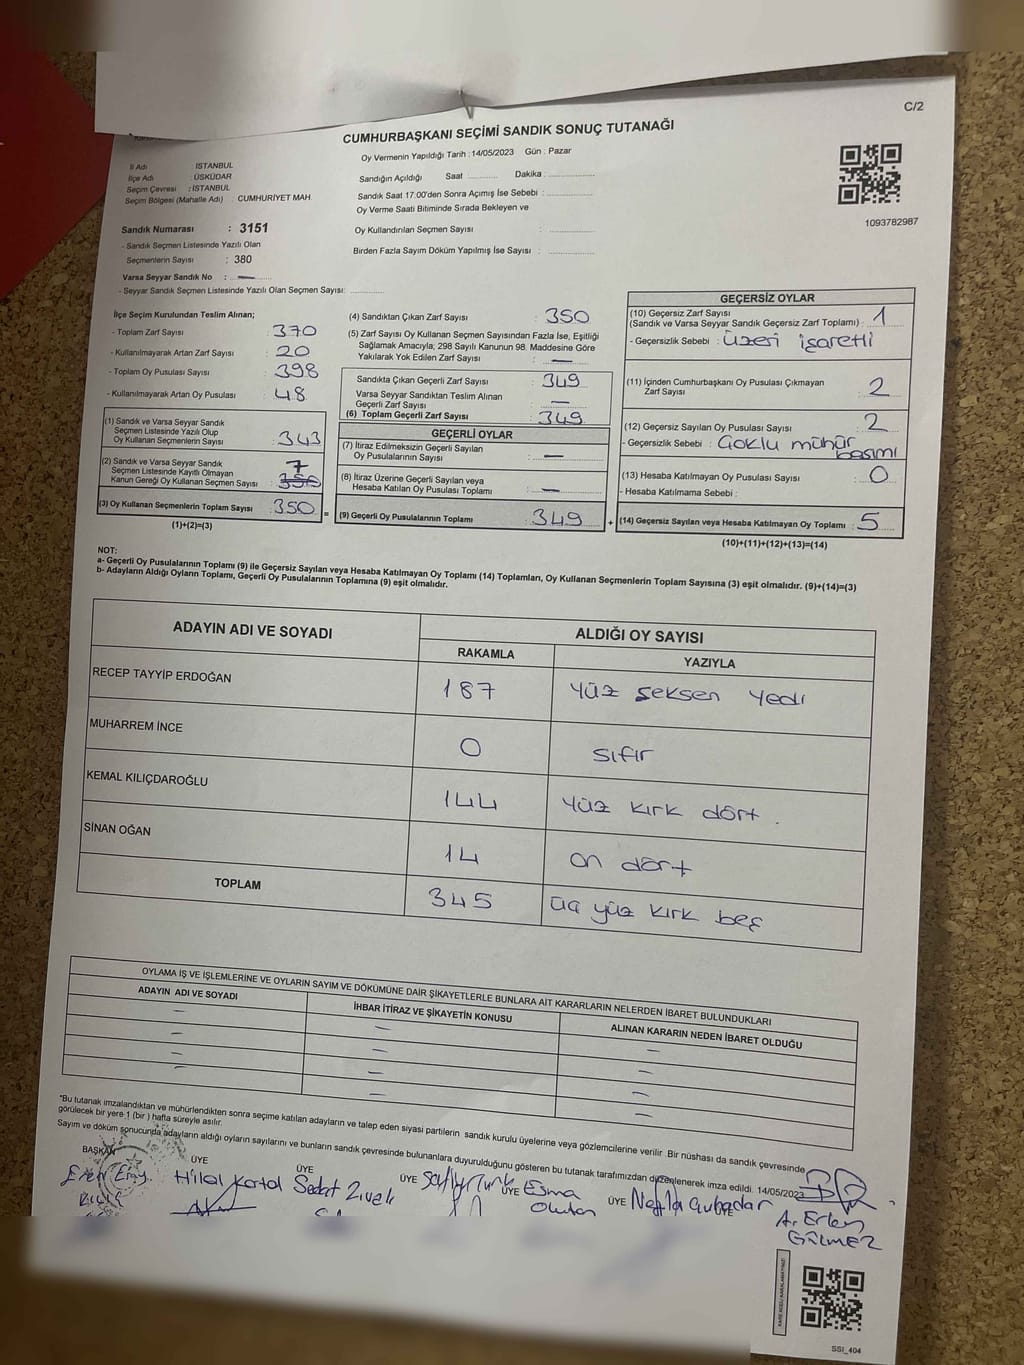 C/2
CUMHURBAŞKANI SEÇİMİ SANDIK SONUÇ TUTANAĞI
İl Adı : İSTANBUL
İlçe Adı : ÜSKÜDAR
Seçim Çevresi : İSTANBUL
Seçim Bölgesi (Mahalle Adı) : CUMHURİYET MAH.
Sandık Numarası : 3151
- Sandık Seçmen Listesinde Yazılı Olan
Seçmenlerin Sayısı : 380
Varsa Seyyar Sandık No : —
- Seyyar Sandık Seçmen Listesinde Yazılı Olan Seçmen Sayısı:
Oy Vermenin Yapıldığı Tarih : 14/05/2023 Gün : Pazar
Sandığın Açıldığı Saat Dakika :
Sandık Saat 17:00'den Sonra Açımış İse Sebebi :
Oy Verme Saati Bitiminde Sırada Bekleyen ve
Oy Kullandırılan Seçmen Sayısı :
Birden Fazla Sayım Döküm Yapılmış İse Sayısı :
1093782987
İlçe Seçim Kurulundan Teslim Alınan;
- Toplam Zarf Sayısı : 370
- Kullanılmayarak Artan Zarf Sayısı : 20
- Toplam Oy Pusulası Sayısı : 398
- Kullanılmayarak Artan Oy Pusulası : 48
(1) Sandık ve Varsa Seyyar Sandık
Seçmen Listesinde Yazılı Olup
Oy Kullanan Seçmenlerin Sayısı : 343
(2) Sandık ve Varsa Seyyar Sandık
Seçmen Listesinde Kayıtlı Olmayan
Kanun Gereği Oy Kullanan Seçmen Sayısı : 7
350
(3) Oy Kullanan Seçmenlerin Toplam Sayısı : 350
(1)+(2)=(3)
=
(4) Sandıktan Çıkan Zarf Sayısı : 350
(5) Zarf Sayısı Oy Kullanan Seçmen Sayısından Fazla İse, Eşitliği
Sağlamak Amacıyla; 298 Sayılı Kanunun 98. Maddesine Göre
Yakılarak Yok Edilen Zarf Sayısı : —
Sandıkta Çıkan Geçerli Zarf Sayısı : 349
Varsa Seyyar Sandıktan Teslim Alınan
Geçerli Zarf Sayısı : —
(6) Toplam Geçerli Zarf Sayısı : 349
GEÇERLİ OYLAR
(7) İtiraz Edilmeksizin Geçerli Sayılan
Oy Pusulalarının Sayısı : —
(8) İtiraz Üzerine Geçerli Sayılan veya
Hesaba Katılan Oy Pusulası Toplamı : —
(9) Geçerli Oy Pusulalarının Toplamı : 349
+
GEÇERSİZ OYLAR
(10) Geçersiz Zarf Sayısı
(Sandık ve Varsa Seyyar Sandık Geçersiz Zarf Toplamı) : 1
- Geçersizlik Sebebi : Üzeri işaretli
(11) İçinden Cumhurbaşkanı Oy Pusulası Çıkmayan
Zarf Sayısı : 2
(12) Geçersiz Sayılan Oy Pusulası Sayısı : 2
- Geçersizlik Sebebi : Çoklu mühür
basımı
(13) Hesaba Katılmayan Oy Pusulası Sayısı : 0
- Hesaba Katılmama Sebebi :
(14) Geçersiz Sayılan veya Hesaba Katılmayan Oy Toplamı : 5
(10)+(11)+(12)+(13)=(14)
NOT:
a- Geçerli Oy Pusulalarının Toplamı (9) ile Geçersiz Sayılan veya Hesaba Katılmayan Oy Toplamı (14) Toplamları, Oy Kullanan Seçmenlerin Toplam Sayısına (3) eşit olmalıdır. (9)+(14)=(3)
b- Adayların Aldığı Oyların Toplamı, Geçerli Oy Pusulalarının Toplamına (9) eşit olmalıdır.
ADAYIN ADI VE SOYADI ALDIĞI OY SAYISI
RAKAMLA YAZIYLA
RECEP TAYYİP ERDOĞAN 187 Yüz seksen yedi
MUHARREM İNCE 0 sıfır
KEMAL KILIÇDAROĞLU 144 Yüz kırk dört .
SİNAN OĞAN 14 on dört
TOPLAM 345 üç yüz kırk beş
OYLAMA İŞ VE İŞLEMLERİNE VE OYLARIN SAYIM VE DÖKÜMÜNE DAİR ŞİKAYETLERLE BUNLARA AİT KARARLARIN NELERDEN İBARET BULUNDUKLARI
ADAYIN ADI VE SOYADI İHBAR İTİRAZ VE ŞİKAYETİN KONUSU ALINAN KARARIN NEDEN İBARET OLDUĞU
— — —
— — —
— — —
— — —
*Bu tutanak imzalandıktan ve mühürlendikten sonra seçime katılan adayların ve talep eden siyasi partilerin sandık kurulu üyelerine veya gözlemcilerine verilir. Bir nüshası da sandık çevresinde
görülecek bir yere 1 (bir ) hafta süreyle asılır.
Sayım ve döküm sonucunda adayların aldığı oyların sayılarını ve bunların sandık çevresinde bulunanlara duyurulduğunu gösteren bu tutanak tarafımızdan düzenlenerek imza edildi. 14/05/2023
BAŞKAN ÜYE ÜYE ÜYE ÜYE ÜYE ÜYE
Hilal Kartal Sedat Esma
A. Erlen
GÜLMEZ
SSI_404